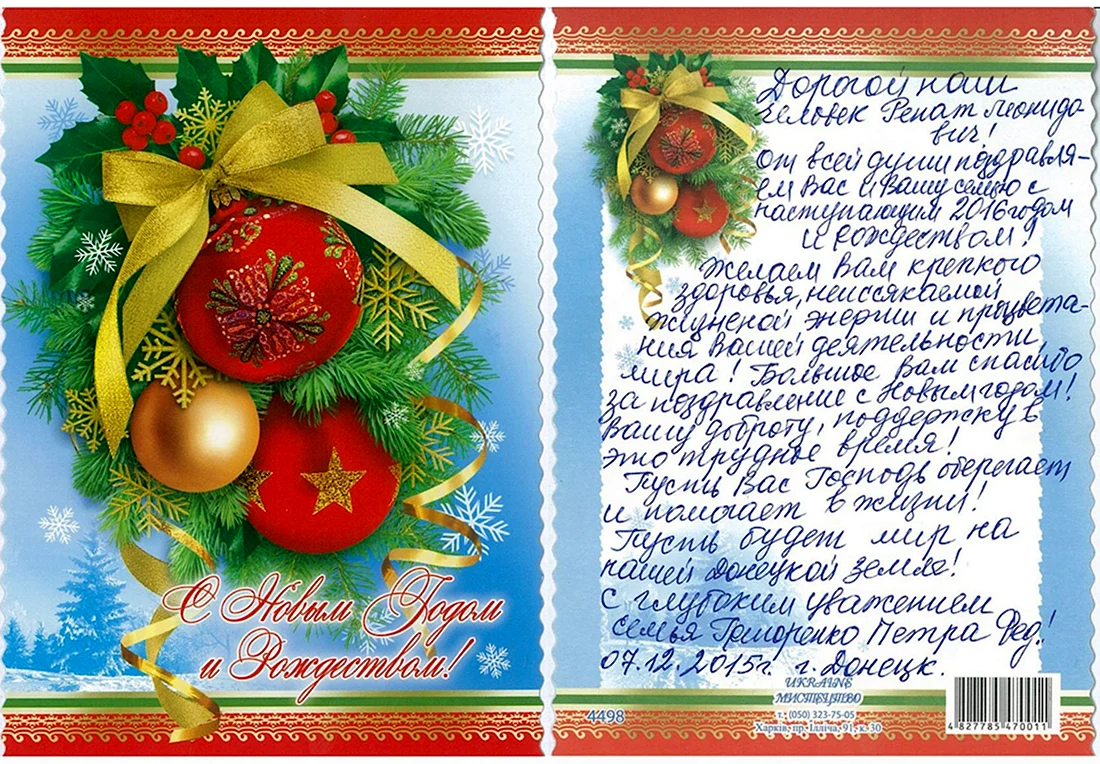 С Новым Годом
и Рождеством!
Дорогой наш
человек Ренат Леонидо-
вич!
От всей души поздравля-
ем Вас и Вашу семью с
наступающим 2016 годом
и рождеством!
Желаем Вам крепкого
здоровья, неиссякаемой
жизненной энергии и процвета-
ния Вашей деятельности,
мира! Большое Вам спасибо
за поздравление с Новым годом!
Вашу доброту, поддержку в
это трудное время!
Пусть Вас Господь оберегает
и помогает в жизни!
Пусть будет мир на
нашей Донецкой земле!
С глубоким уважением
семья Петра Фед.!
07.12.2015г. г. Донецк.
UKRAINE
МИСТЕЦТВО
4498
т. (050) 323-75-05
Харків, пр. Ілліча, 91, к. 30
4 827785 470011